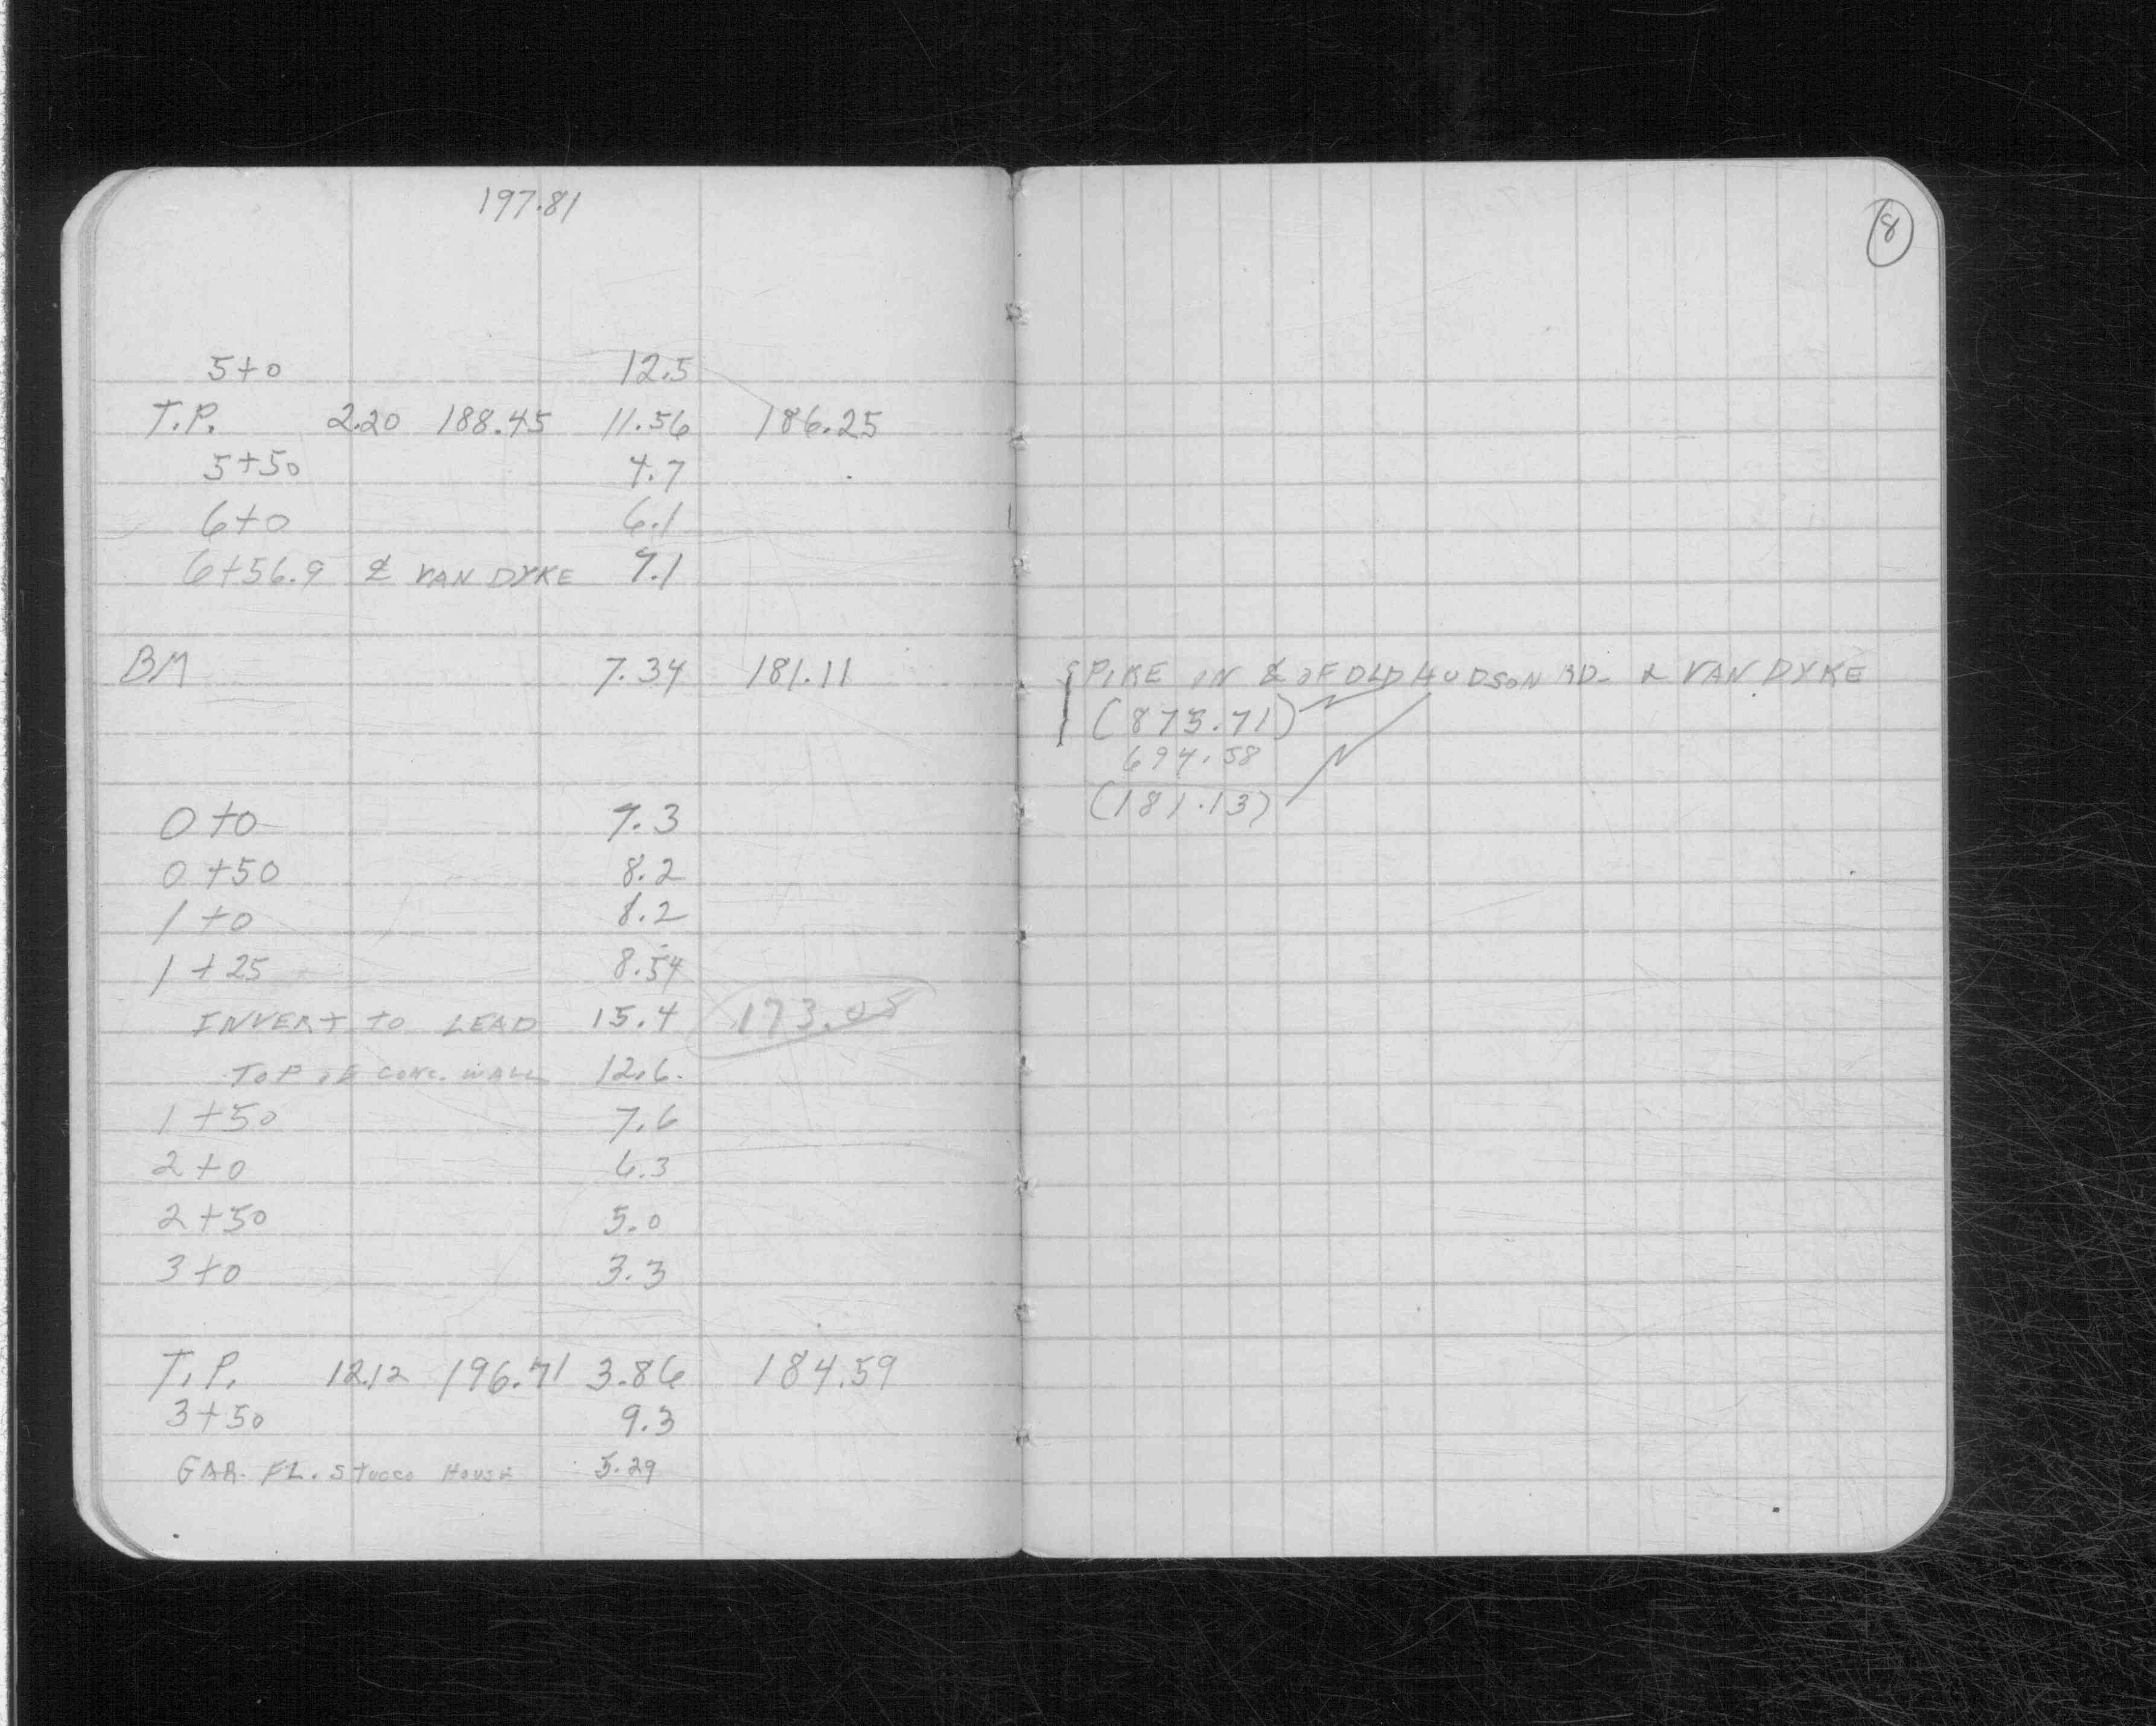 197.81
5+0 12.5
T.P. 2.20 188.45 11.56 186.25
5+50 4.7
6+0 6.1
6+56.9 ℄ VAN DYKE 7.1
BM 7.34 181.11
0+0 7.3
0+50 8.2
1+0 8.2
1+25 8.54
INVERT TO LEAD 15.4 173.05
TOP OF CONC. WALL 12.6
1+50 7.6
2+0 6.3
2+50 5.0
3+0 3.3
T.P. 12.12 196.71 3.86 184.59
3+50 9.3
GAR. FL. STUCCO HOUSE 5.29
8
SPIKE IN ℄ OF OLD HUDSON RD. & VAN DYKE
(875.71)
694.58
(181.13)